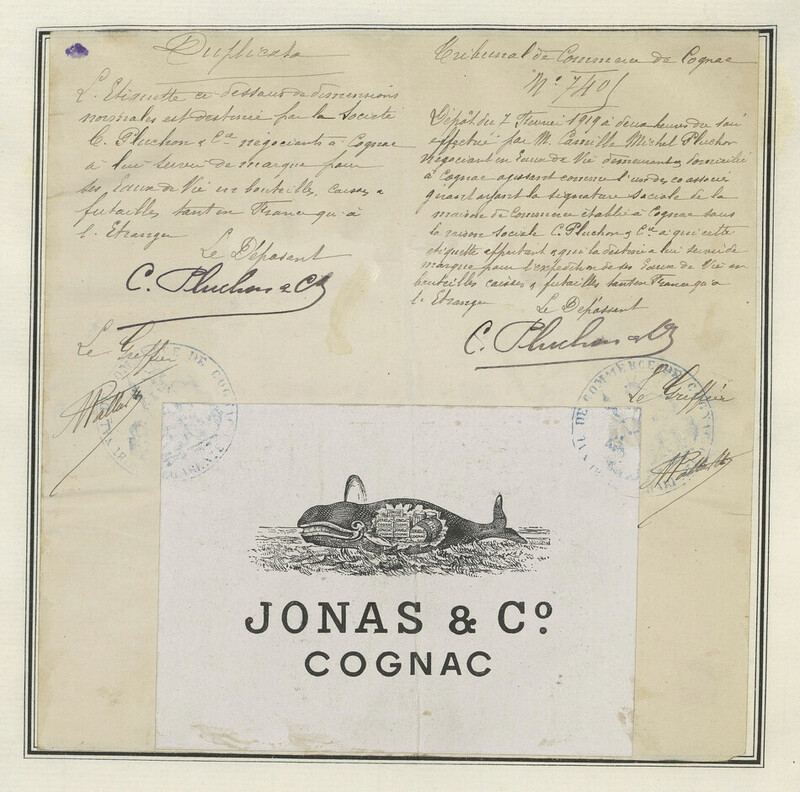 Duplicata
L'Etiquette ci dessous de dimensions
normales est destinée par la Société
C. Pluchon & Cie négociants à Cognac
à leur servir de marque pour
ses Eaux de Vie en bouteilles, caisses &
futailles tant en France qu'à
l'Etranger
Le Déposant
C. Pluchon & Co
Le Greffier
Tribunal de Commerce de Cognac
No 7405
Dépôt du 7 Février 1919 à deux heures du soir
effectué par M. Camille Michel Pluchon
négociant en Eaux de Vie demeurant & domicilié
à Cognac agissant comme l'un des co associés
gérant ayant la signature sociale de la
maison de Commerce établie à Cognac sous
la raison sociale C. Pluchon & Cie à qui cette
étiquette appartient & qui la destine à lui servir de
marque pour l'expédition de ses Eaux de Vie en
bouteilles caisses & futailles tant en France qu'à
l'Etranger
Le Dépossant
C. Pluchon & Co
Le Greffier
DE COGNAC
COMMERCE DE COGNAC
JONAS & Co.
COGNAC